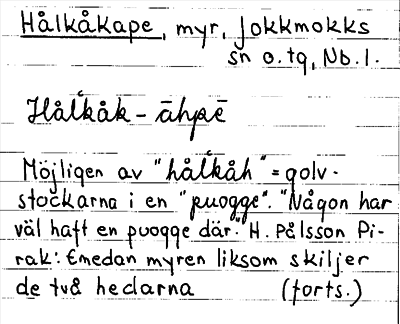 Hålkåkape, myr, Jokkmokks
sn o. tg, Nb. l.
Hålkåk – āhpē
Möjligen av "hålkåh" = golv-
stockarna i en "puogge". "Någon har
väl haft en puogge där." H. Pålsson Pi-
rak: Emedan myren liksom skiljer
de två hedarna (forts.)